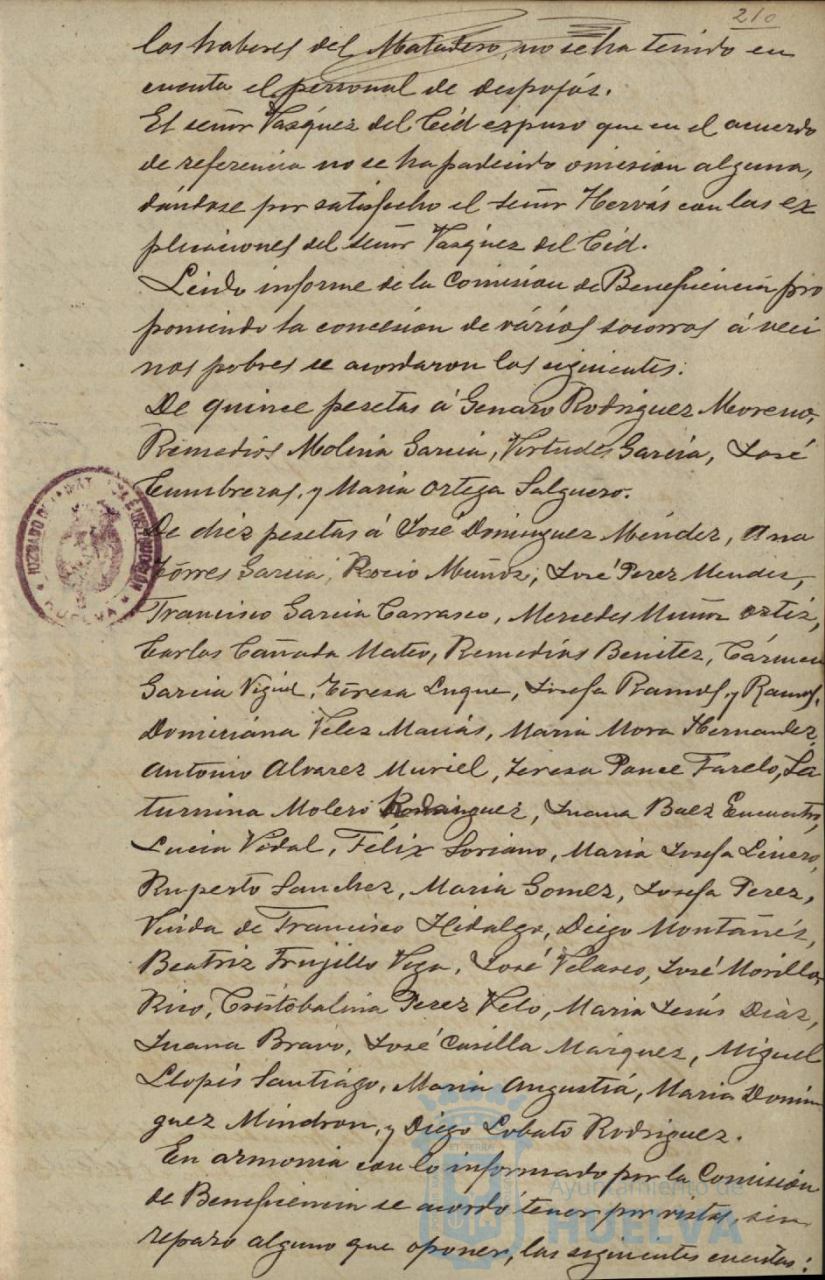 210
los haberes del Matadero, no se ha tenido en
cuenta el personal de despojos.
El señor Vasquez del Cid expuso que en el acuerdo
de referencia no se ha padecido omision alguna,
dándose por satisfecho el señor Hervás con las ex
plicaciones del señor Vasquez del Cid.
Leido informe de la Comision de Beneficencia pro
poniendo la concesion de vários socorros á veci
nos pobres se acordaron los siguientes:
De quince pesetas á Genaro Rodriguez Moreno,
Remedios Molina Garcia, Virtudes Garcia, José
Cumbreras, y Maria Ortega Salguero.
De diez pesetas á José Dominguez Méndez, Ana
Torres Garcia, Rocio Muñoz, José Perez Mendez,
Francisco Garcia Carrasco, Mercedes Muñoz Ortiz,
Carlos Cañada Mateo, Remedios Benitez, Cármen
Garcia, Teresa Luque, Josefa Ramos, y Ramos,
Domiciána Velez Maciás, Maria Mora Hernandez,
Antonio Alvarez Muriel, Teresa Ponce Farelo, Sa
turnina Molero Rodriguez, Juana Baez
Lucia Vidal, Félix Soriano, Maria Josefa Linero,
Ruperto Sanchez, Maria Gomez, Josefa Perez,
Viuda de Francisco Hidalgo, Diego Montañés,
Beatriz Trujillo Vega, José Velasco, José Morillo
Rico, Cristobalina Perez Velo, Maria Jesús Diàz,
Juana Bravo, José Casilla Marquez, Miguel
Llopis Santiágo, Maria Angustiá, Maria Domin
guez Mindron, y Diego Lobato Rodriguez.
En armonia con lo informado por la Comision
de Beneficencia se acordó tener por vistas, sin
reparo alguno que oponer, las siguientes cuentas:
HUELVA
Ayuntamiento de
HUELVA